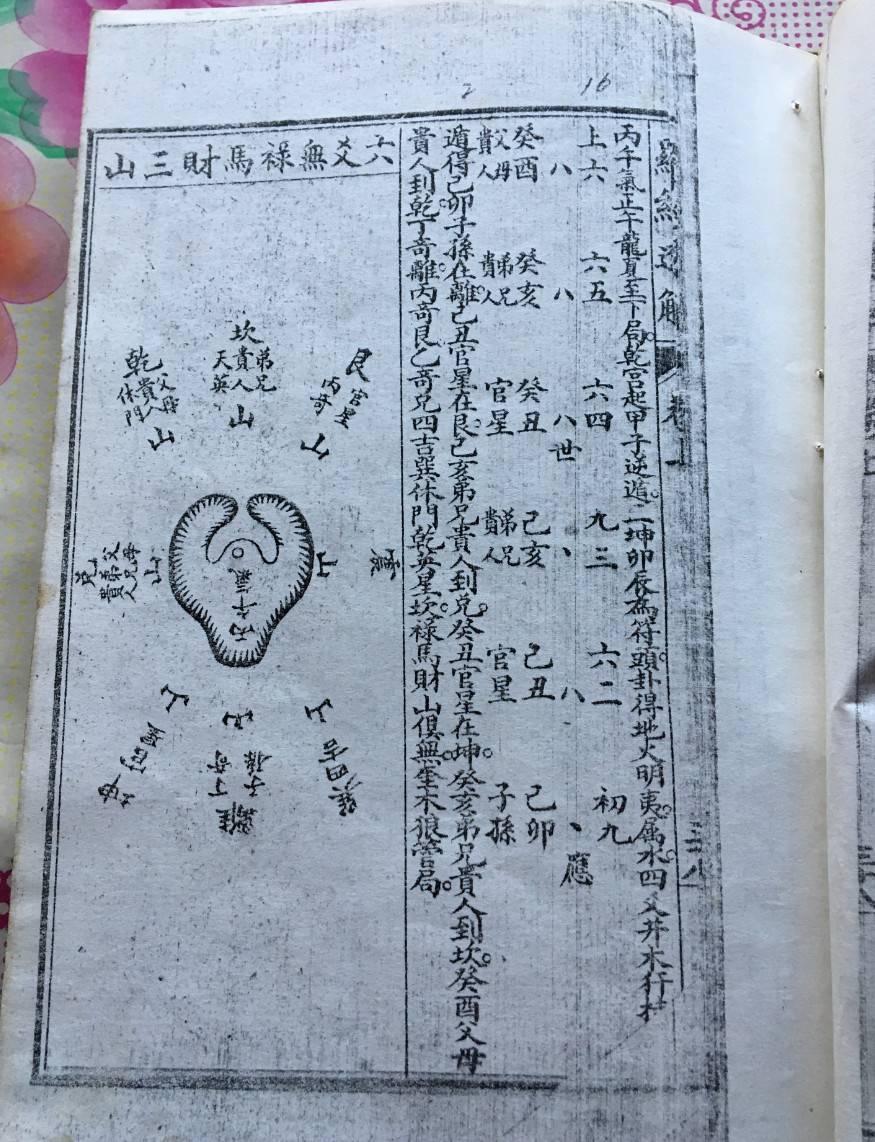 2
16
羅經透解
卷上
丙午氣正午龍夏至下局乾宮起甲子逆遁二坤卯辰為符頭卦得地火明夷屬水四爻井木犴
上六 六五 六四 九三 六二 初九
八 八 八世 、 八 、應
癸酉 癸亥 癸丑 己亥 己丑 己卯
父母貴人 弟兄貴人 官星 弟兄貴人 官星 子孫
遁得己卯子孫在離己丑官星在艮己亥弟兄貴人到兌癸丑官星在坤癸亥弟兄貴人到坎癸酉父母
貴人到乾丁奇離丙奇艮乙奇兌四吉巽休門乾英星坎祿馬財山俱無奎木狼管局
六爻無祿馬財三山
坎
弟兄
貴人
天英
山
艮
官星
丙奇
山
乾
父母
貴人
休門
山
震
山
兌
父母
弟兄
貴人
山
丙午氣
巽四吉
山
離
子孫
丁奇
山
坤
官星
山